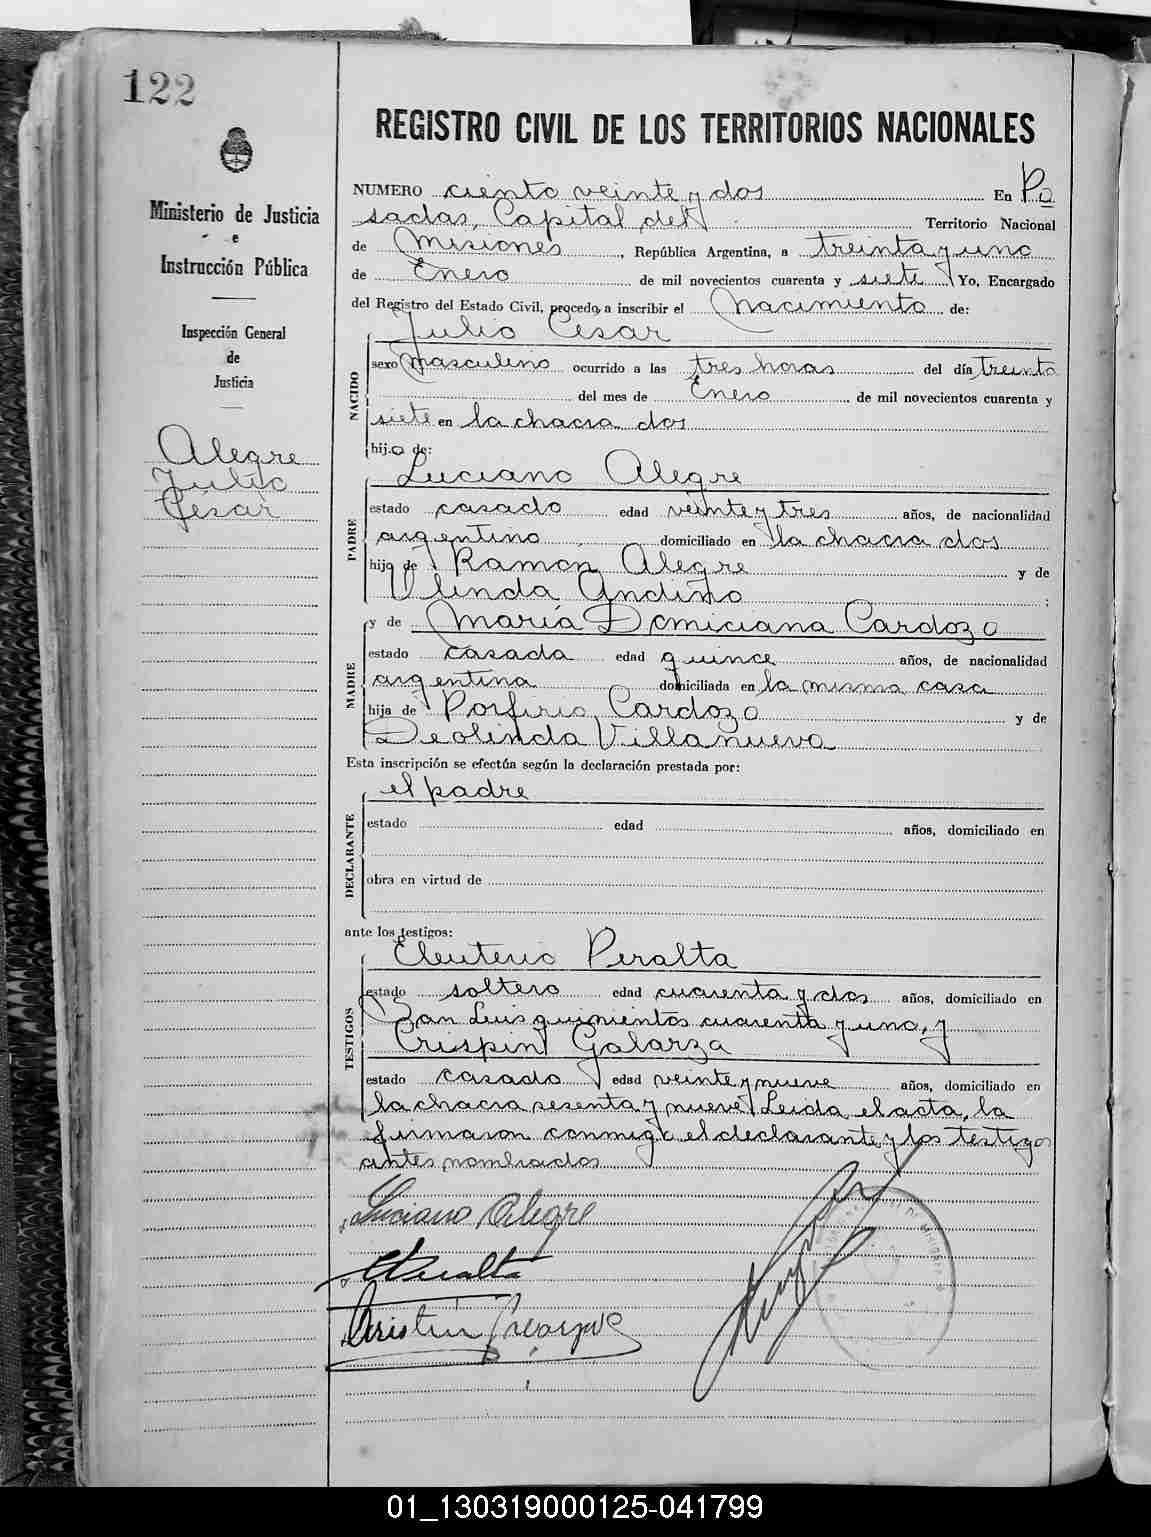 122
REGISTRO CIVIL DE LOS TERRITORIOS NACIONALES
Ministerio de Justicia
e
Instrucción Pública
Inspección General
de
Justicia
Alegre
Julio
César
NUMERO ciento veinte y dos En Po
sadas, Capital del Territorio Nacional
de Misiones, República Argentina, a treinta y uno
de Enero de mil novecientos cuarenta y siete Yo, Encargado
del Registro del Estado Civil, procedo a inscribir el Nacimiento de:
Julio César
NACIDO
sexo masculino ocurrido a las tres horas del día treinta
del mes de Enero de mil novecientos cuarenta y
siete en la chacra dos
hijo de:
Luciano Alegre
PADRE
estado casado edad veinte y tres años, de nacionalidad
argentino domiciliado en la chacra dos
hijo de Ramón Alegre y de
Olinda Andino ;
y de María Domiciana Cardozo
MADRE
estado casada edad quince años, de nacionalidad
argentina domiciliada en la misma casa
hija de Porfirio Cardozo y de
Deolinda Villanueva
Esta inscripción se efectúa según la declaración prestada por:
el padre
DECLARANTE
estado edad años, domiciliado en
obra en virtud de
ante los testigos:
Eleuterio Peralta
TESTIGOS
estado soltero edad cuarenta y dos años, domiciliado en
San Luis quinientos cuarenta y uno, y
Crispin Galarza
estado casado edad veinte y nueve años, domiciliado en
la chacra sesenta y nueve. Leida el acta, la
firmaron conmigo el declarante y los testigos
antes nombrados
Luciano Alegre
EPeralta
01_130319000125-041799